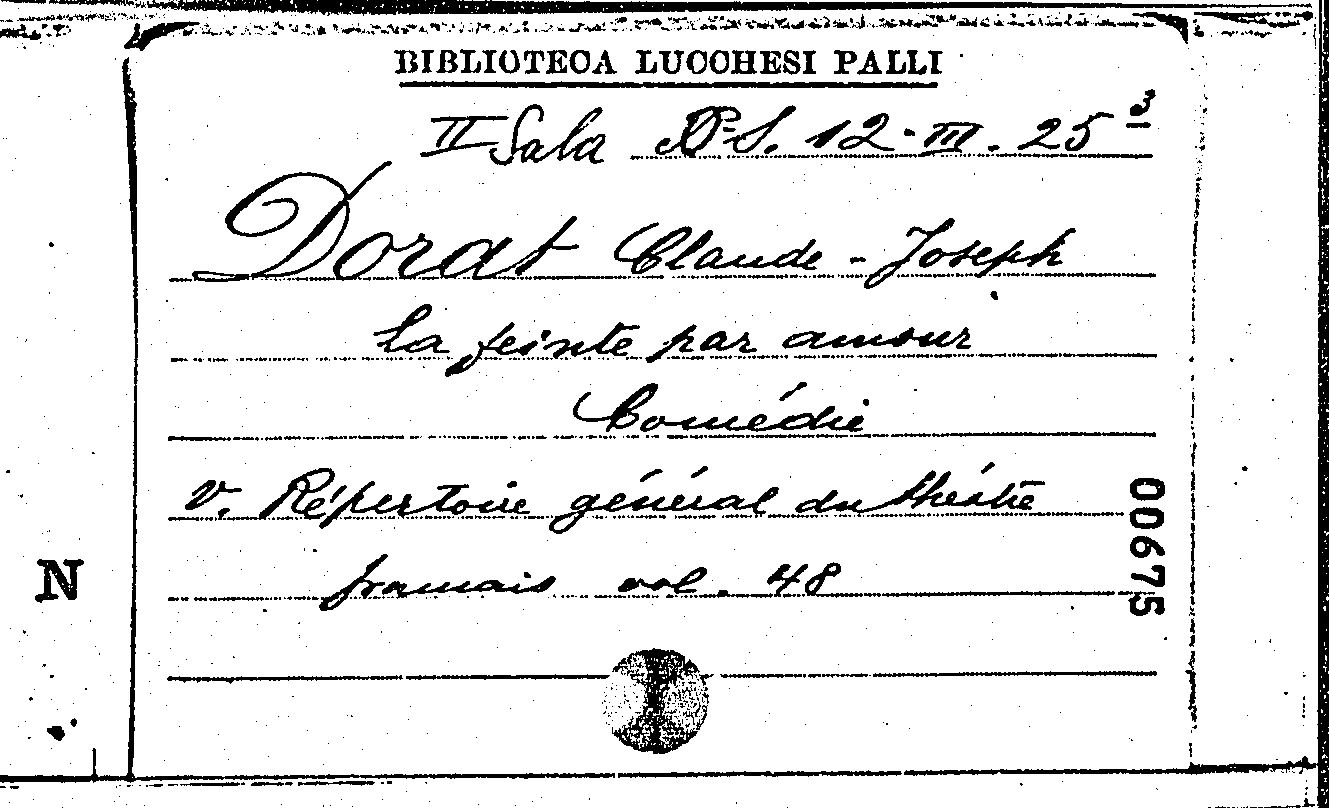 BIBLIOTECA LUCCHESI PALLI
II Sala P.S. 12-III. 25 3
Dorat Claude-Joseph
La feinte par amour
Comédie
v. Répertoire général du théâtre
français vol. 48
00675
N